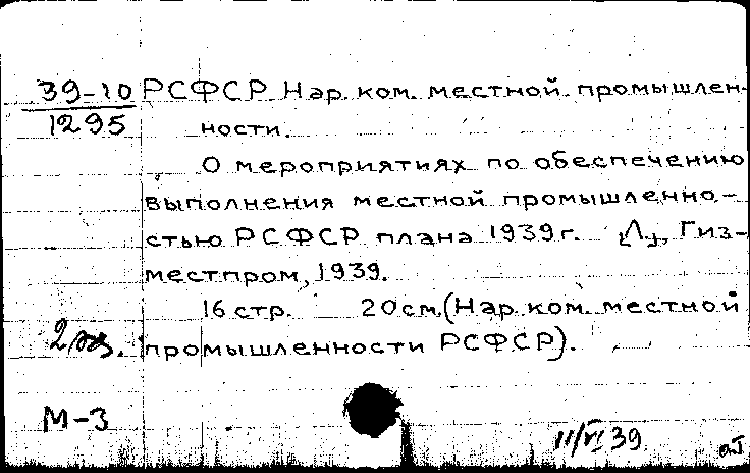 39-10 РСФСР Нар. ком. местной промышлен-
1295 ности.
О мероприятиях по обеспечению
выполнения местной промышленно-
стью РСФСР плана 1939 г. [Л.], Гиз-
местпром, 1939.
16 стр. 20 см. (Нар. ком. местной
2 экз. промышленности РСФСР).
М-3
11/VI 39